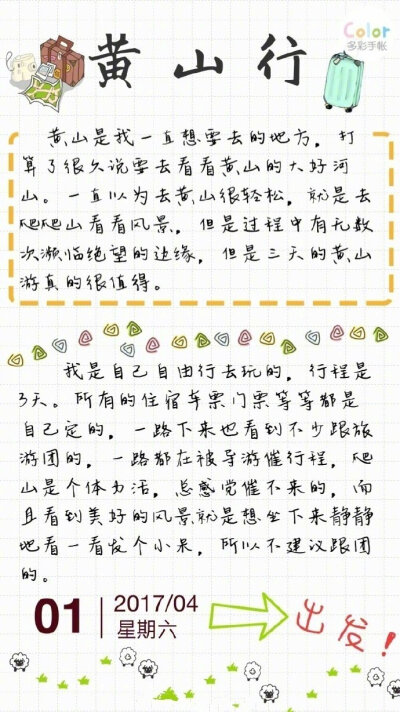 Color
多彩手帐
黄山行
黄山是我一直想要去的地方，打
算了很久说要去看看黄山的大好河
山。一直以为去黄山很轻松，就是去
爬爬山看看风景，但是过程中有无数
次濒临绝望的边缘，但是三天的黄山
游真的很值得。
我是自己自由行去玩的，行程是
3天。所有的住宿车票门票等等都是
自己定的，一路下来也看到不少跟旅
游团的，一路都在被导游催行程，爬
山是个体力活，总感觉催不来的，而
且看到美好的风景就是想坐下来静静
地看一看发个小呆，所以不建议跟团
的。
01
2017/04
星期六
出发！